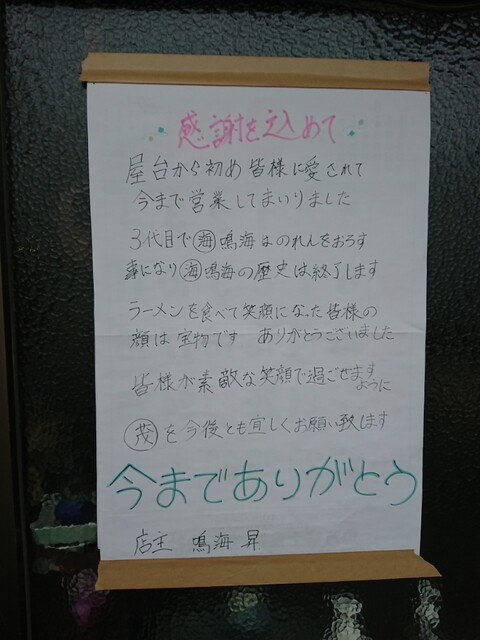 感謝を込めて
屋台から初め皆様に愛されて
今まで営業してまいりました
3代目で㊙海鳴海はのれんをおろす
事になり海鳴海の歴史は終了します
ラーメンを食べて笑顔になった皆様の
顔は宝物です ありがとうございました
皆様が素敵な笑顔で過ごせます
ように
茂を今後とも宜しくお願い致します
今までありがとう
店主 鳴海 昇